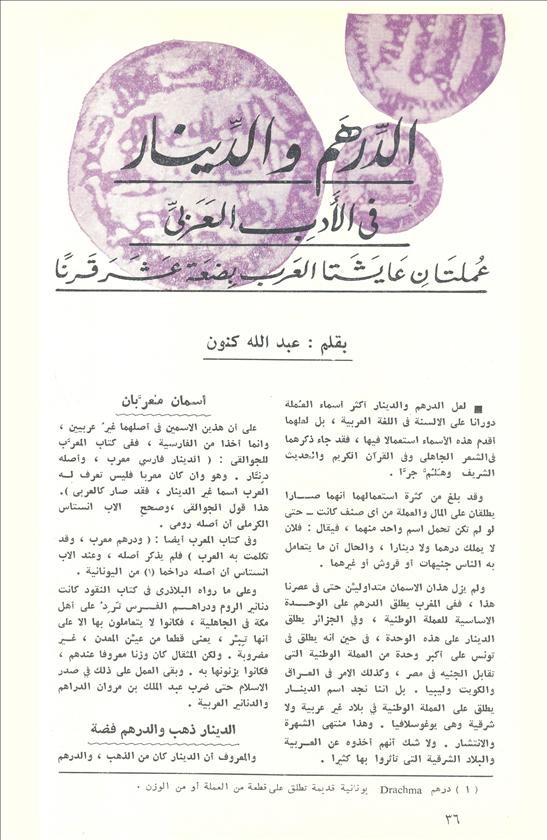 الدِّرهَم والدِّينار
في الأَدبِ العَرَبيِّ
عُملتَانِ عَايَشَتَا العَرَب بِضعَة عَشَرَ قَرنًا
بقلم : عبد الله كنون
■ لعل الدرهم والدينار أكثر أسماء العملة
دورانا على الالسنة في اللغة العربية ، بل لعلهما
أقدم هذه الأسماء استعمالا فيها ، فقد جاء ذكرهما
في الشعر الجاهلي وفي القرآن الكريم والحديث
الشريف وهلم جرا .
وقد بلغ من كثرة استعمالهما أنهما صارا
يطلقان على المال والعملة من أى صنف كانت ـ حتى
لو لم تكن تحمل اسم واحد منهما ، فيقال : فلان
لا يملك درهما ولا دينارا ، والحال أن ما يتعامل
به الناس جنيهات أو قروش أو غيرهما .
ولم يزل هذان الاسمان متداولين حتى فى عصرنا
هذا ، ففى المغرب يطلق الدرهم على الوحدة
الاساسية للعملة الوطنية ، وفي الجزائر يطلق
الدينار على هذه الوحدة ، في حين انه يطلق فى
تونس على أكبر وحدة من العملة الوطنية التى
تقابل الجنيه فى مصر ، وكذلك الامر فى العراق
والكويت وليبيا . بل اننا نجد اسم الدينار
يطلق على العملة الوطنية في بلاد غير عربية ولا
شرقية وهى يوغوسلافيا . وهذا منتهى الشهرة
والانتشار . ولا شك أنهم أخذوه عن العربية
والبلاد الشرقية التى تأثروا بها كثيرا .
أسمان معرَّبان
على أن هذين الاسمين فى أصلهما غير عربيين ،
وانما أخذا من الفارسية ، ففى كتاب المعرَّب
للجوالقى : ( الدينار فارسي معرب ، وأصله
دِنَّار . وهو وان كان معربا فليس تعرف له
العرب اسما غير الدينار ، فقد صار كالعربى ) .
هذا قول الجوالقى ، وصحح الاب انستاس
الكرملى أن أصله رومى .
وفى كتاب المعرب أيضا : ( ودرهم معرب ، وقد
تكلمت به العرب ) فلم يذكر أصله ، وعند الاب
انستاس أن أصله دراخما (١) من اليونانية .
وعلى ما رواه البلاذرى فى كتاب النقود كانت
دنانير الروم ودراهم الفرس تَرِد على أهل
مكة فى الجاهلية ، فكانوا لا يتعاملون بها الا على
أنها تِبْر ، يعنى قطعا من عين المعدن ، غير
مضروبة . ولكن المثقال كان وزنا معروفا عندهم ،
فكانوا يزنونها به . وبقى العمل على ذلك فى صدر
الاسلام حتى ضرب عبد الملك بن مروان الدراهم
والدنانير العربية .
الدينار ذهب والدرهم فضة
والمعروف أن الدينار كان من الذهب ، والدرهم
( ١ ) درهم Drachma يونانية قديمة تطلق على قطعة من العملة أو من الوزن .
٣٦